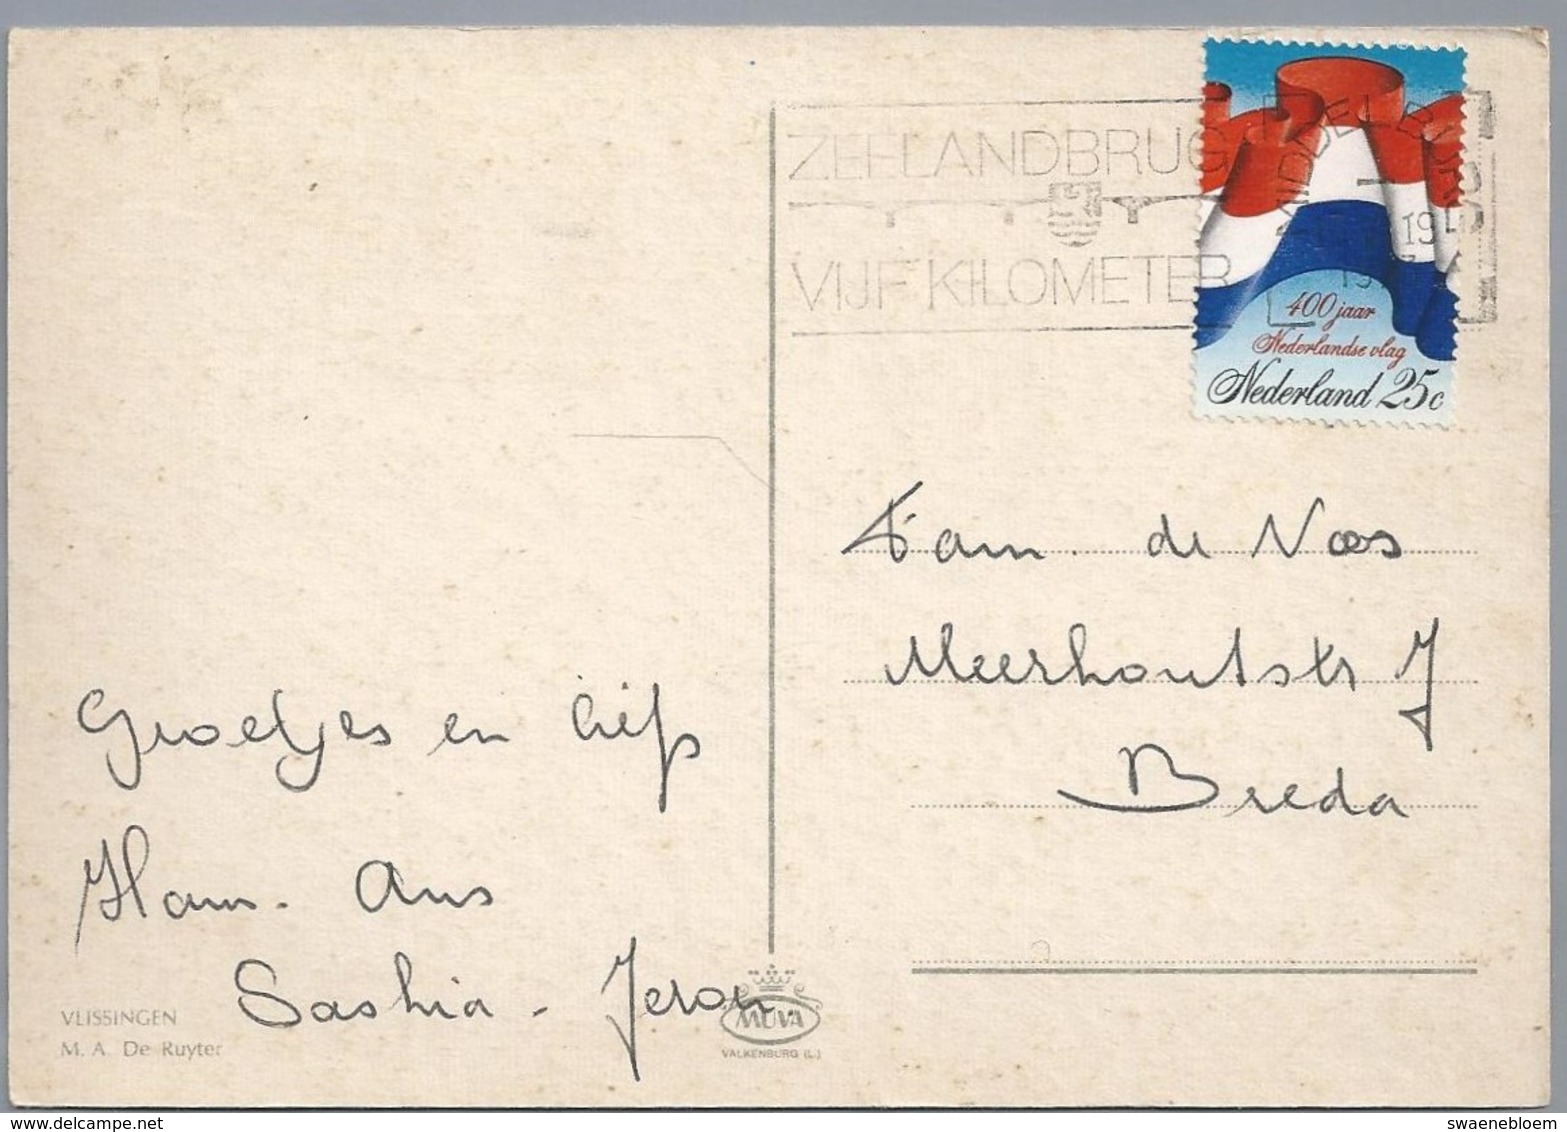 ZEELANDBRUG
VIJF KILOMETER
MIDDELBURG
19
400 jaar
Nederlandse vlag
Nederland 25c
Fam. de Vos
Meerhoutstr 7
Breda
Groetjes en liefs
Hans. Ans
Saskia - Jeron.
VLISSINGEN
M. A. De Ruyter
MUVA
VALKENBURG (L.)
www.delcampe.net
swaenebloem